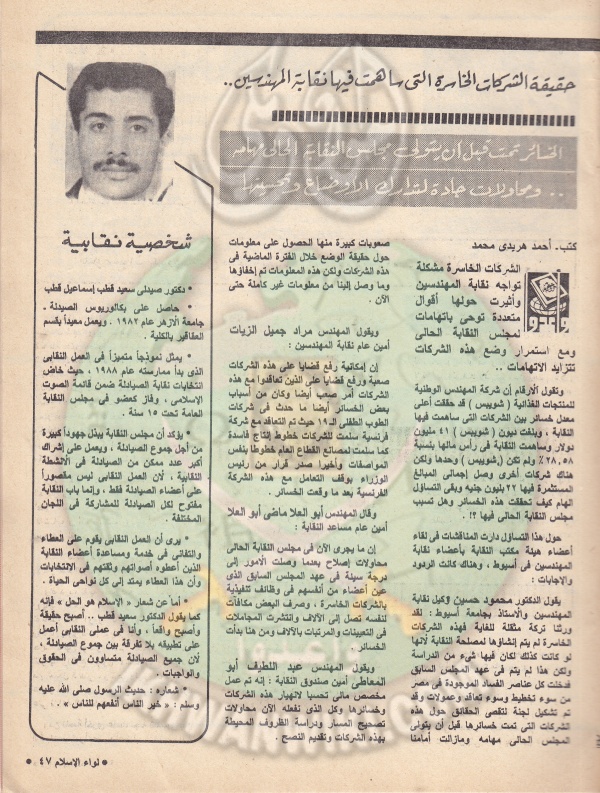 حقيقة الشركات الخاسرة التى ساهمت فيها نقابة المهندسين ..
الخسائر تمت قبل أن يتولى مجلس النقابة الحالى مهامه
.. ومحاولات جادة لتدارك الأوضاع وتحسينها
كتب. أحمد هريدى محمد
الشركات الخاسرة مشكلة
تواجه نقابة المهندسين
وأثيرت حولها أقوال
متعددة توحى باتهامات
لمجلس النقابة الحالى
ومع استمرار وضع هذه الشركات
تتزايد الاتهامات ..
وتقول الأرقام إن شركة المهندس الوطنية
للمنتجات الغذائية ( شويبس ) قد حققت أعلى
معدل خسائر بين الشركات التى ساهمت فيها
النقابة ، وبلغت ديون ( شويبس ) ٤١ مليون
دولار وساهمت النقابة فى رأس مالها بنسبة
٢٨,٥٨٪ ولم تكن ( شويبس ) وحدها ولكن
هناك شركات أخرى وصل إجمالى المبالغ
المستثمرة فيها ٢٢ بليون جنيه وبقى التساؤل
الهام كيف تحققت هذه الخسائر وهل تسبب
مجلس النقابة الحالى فيها ؟! .
حول هذا التساؤل دارت المناقشات فى لقاء
أعضاء هيئة مكتب النقابة بأعضاء نقابة
المهندسين فى أسيوط ، وهناك كانت الردود
والاجابات :
يقول الدكتور محمود حسين وكيل نقابة
المهندسين والأستاذ بجامعة أسيوط : لقد
ورثنا تركة مثقلة للغاية فهذه الشركات
الخاسرة لم يتم إنشاؤها لمصلحة النقابة لأنها
لو كانت كذلك لكان فيها شىء من الدراسة
ولكن هذا لم يتم فى عهد المجلس السابق
فدخلت كل عناصر الفساد الموجودة فى مصر
من سوء تخطيط وسوء تعاقد وعمولات وقد
تم تشكيل لجنة لتقصى الحقائق حول هذه
الشركات التى تمت خسائرها قبل أن يتولى
المجلس الحالى مهامه ومازالت أمامنا
صعوبات كبيرة منها الحصول على معلومات
حول حقيقة الوضع خلال الفترة الماضية فى
هذه الشركات ولكن هذه المعلومات تم إخفاؤها
وما وصل إلينا من معلومات غير كاملة حتى
الآن .
ويقول المهندس مراد جميل الزيات
أمين عام نقابة المهندسين :
إن إمكانية رفع قضايا على هذه الشركات
صعبة ورفع قضايا على الذين تعاقدوا مع هذه
الشركات أمر صعب أيضا وكان من أسباب
بعض الخسائر أيضا ما حدث فى شركات
الطوب الطفلى الـ ١٩ حيث تم التعاقد مع شركة
فرنسية سلمت للشركات خطوط إنتاج فاسدة
كما سلمت لمصانع القطاع العام خطوطا بنفس
المواصفات وأخيرا صدر قرار من رئيس
الوزراء بوقف التعامل مع هذه الشركة
الفرنسية بعد ما وقعت الخسائر .
وقال المهندس أبو العلا ماضى أبو العلا
أمين عام مساعد النقابة :
إن ما يجرى الآن فى مجلس النقابة الحالى
محاولات إصلاح بعدما وصلت الأمور إلى
درجة سيئة فى عهد المجلس السابق الذى
عين أعضاء من أنفسهم فى وظائف تنفيذية
بالشركات الخاسرة ، وصرف البعض مكافآت
لنفسه تصل إلى الآلاف وانتشرت المجاملات
فى التعيينات والمرتبات بالآلاف ومن هنا بدأت
الخسائر .
ويقول المهندس عبد اللطيف أبو
المعاطى أمين صندوق النقابة : إنه تم عمل
مخصص مالى تحسبا لانهيار هذه الشركات
وخسائرها وكل الذى نفعله الآن محاولات
تصحيح المسار ودراسة الظروف المحيطة
بهذه الشركات وتقديم النصح .
شخصية نقابية
• دكتور صيدلى سعيد قطب إسماعيل قطب
- حاصل على بكالوريوس الصيدلة -
جامعة الأزهر عام ١٩٨٢ . ويعمل معيداً بقسم
العقاقير بالكلية .
• يمثل نموذجاً متميزاً فى العمل النقابى
الذى بدأ ممارسته عام ١٩٨٨ ، حيث خاض
انتخابات نقابة الصيادلة ضمن قائمة الصوت
الإسلامى ، وفاز كعضو فى مجلس النقابة
العامة تحت ١٥ سنة .
• يؤكد أن مجلس النقابة يبذل جهوداً كبيرة
من أجل جموع الصيادلة ، ويعمل على إشراك
أكبر عدد ممكن من الصيادلة فى الأنشطة
النقابية ، لأن العمل النقابى ليس مقصوراً
على أعضاء الصيادلة فقط ، وإنما باب النقابة
مفتوح لكل الصيادلة للمشاركة فى اللجان
المختلفة .
• يرى أن العمل النقابى يقوم على العطاء
والتفانى فى خدمة ومساعدة أعضاء النقابة
الذين أعطوه أصواتهم وثقتهم فى الانتخابات
وأن هذا العطاء يمتد إلى كل نواحى الحياة .
• أما عن شعار « الإسلام هو الحل » فإنه
كما يقول الدكتور سعيد قطب .. أصبح حقيقة
وأصبح واقعاً ، وأنا فى عملى النقابى أعمل
على تطبيقه بلا تفرقة بين جموع الصيادلة ،
لأن جميع الصيادلة متساوون فى الحقوق
والواجبات .
• شعاره : حديث الرسول صلى الله عليه
وسلم : « خير الناس أنفعهم للناس » .
• لواء الإسلام ٤٧ •